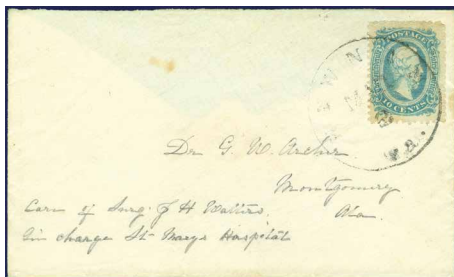 POSTAGE
10 CENTS
Dr G. W. Archer
Montgomery
Ala.
Care of Surg. J H Watters
In charge St. Marys Hospital